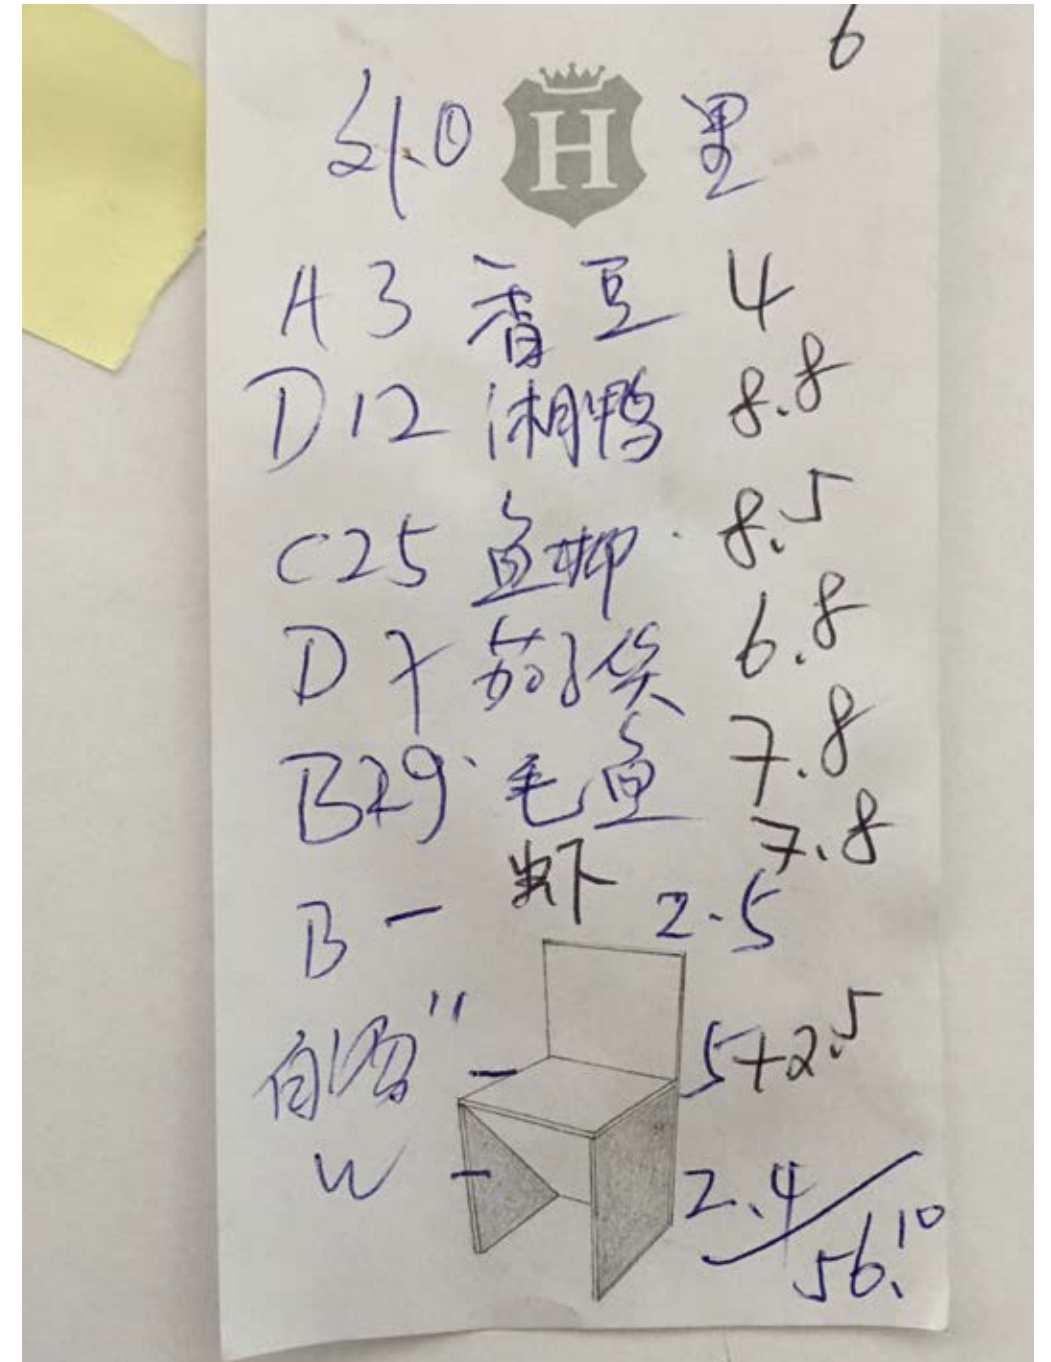 6
H 里
A3 香豆 4
D12 湘鸭 8.8
C25 鱼柳 8.5
D7 茄子 6.8
B29 毛鱼 7.8
虾 7.8
B - 2.5
5+2.5
W - 2.4
56.10